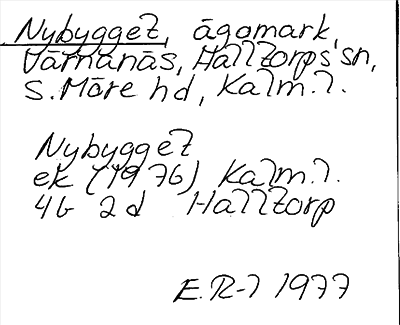 Nybygget, ägomark,
Värnanäs, Halltorps sn,
S. Möre hd, Kalm. l.
Nybygget
ek (1976) Kalm. l.
4G 2d Halltorp
E. R-l 1977